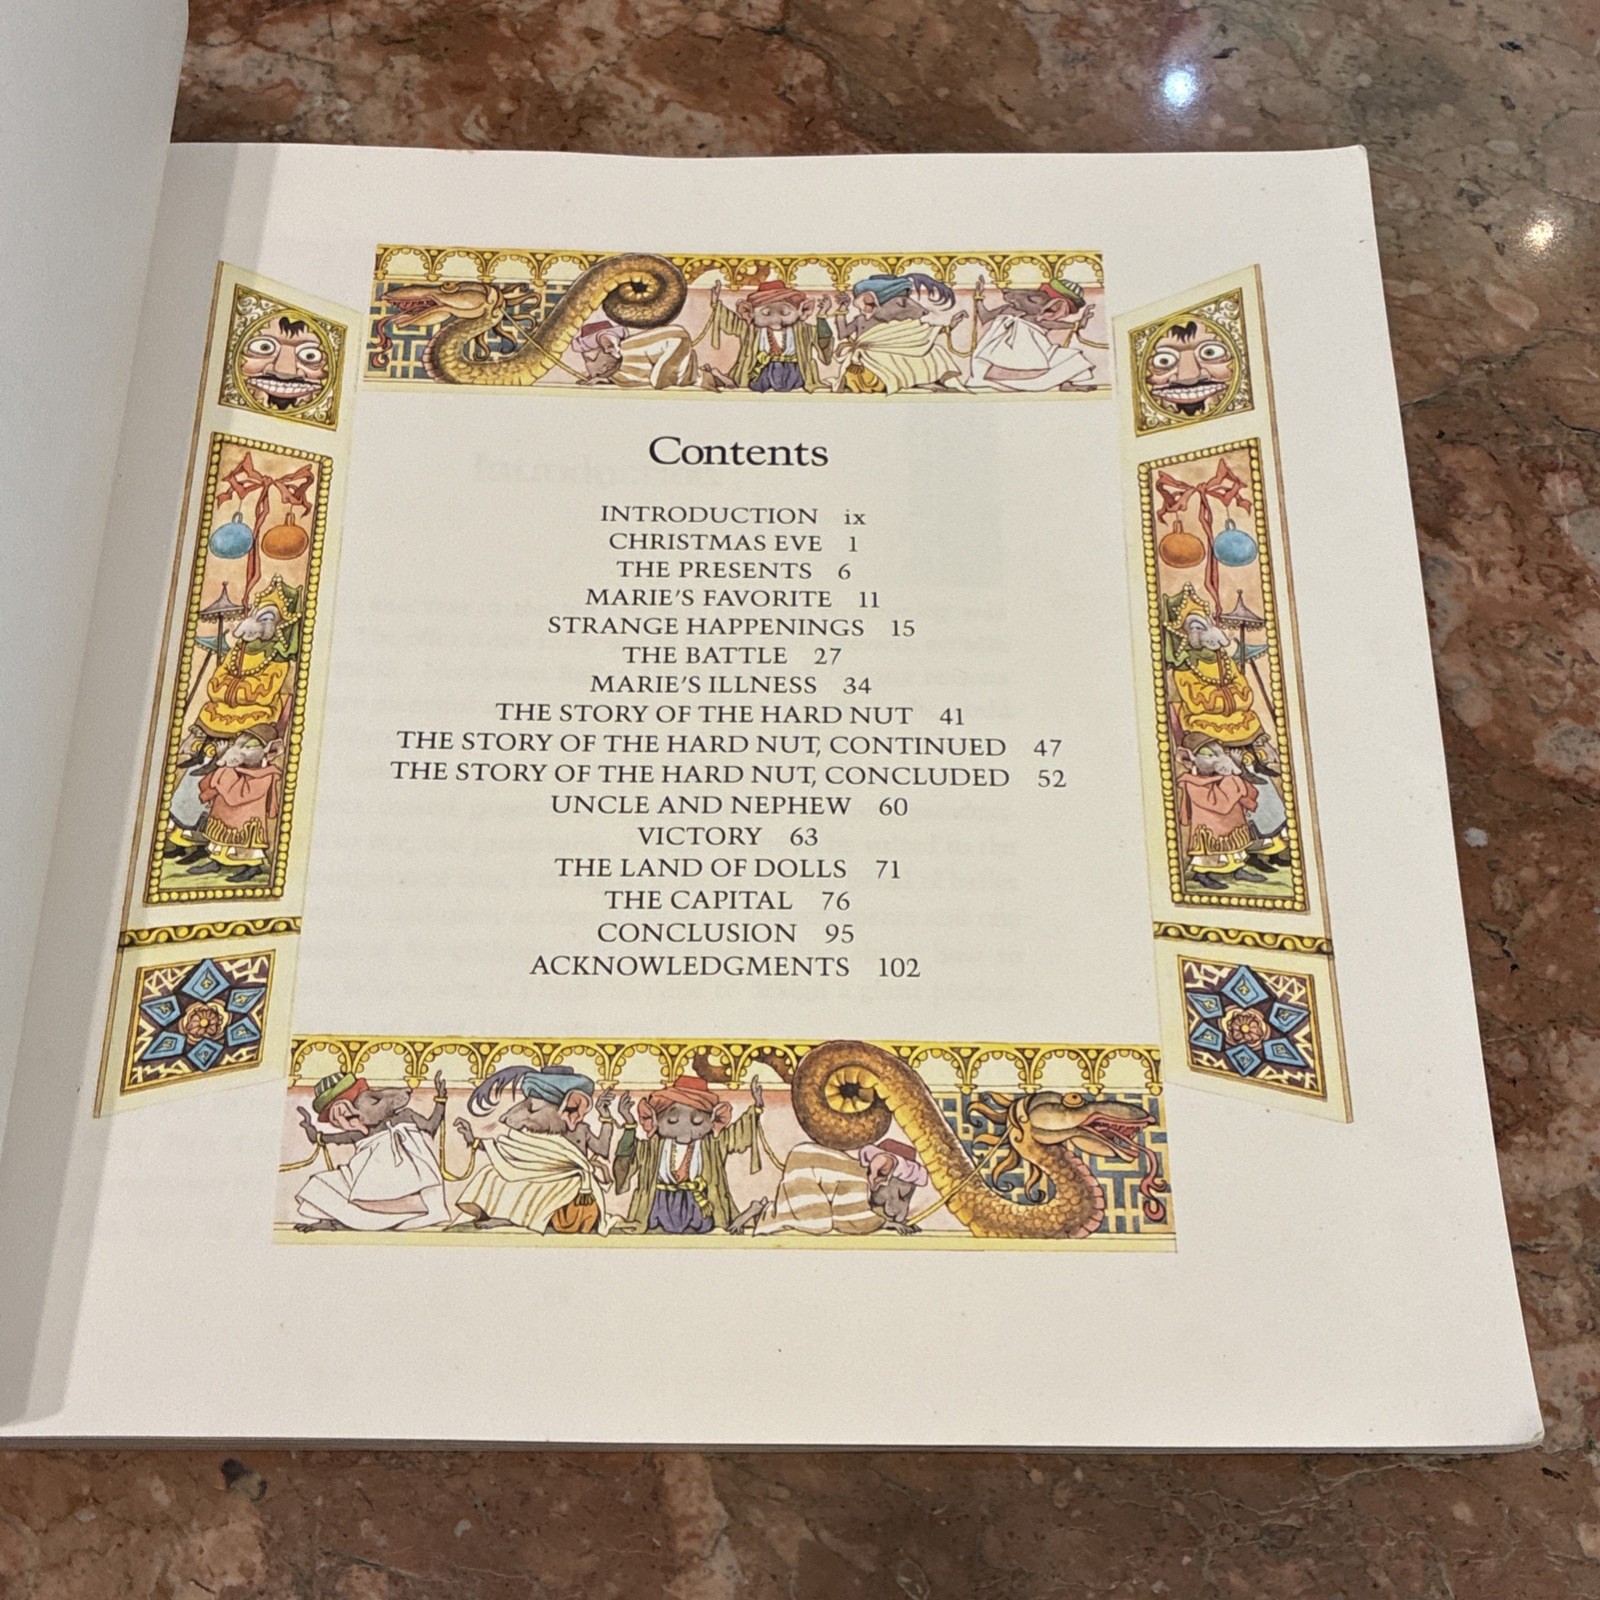 Contents
INTRODUCTION ix
CHRISTMAS EVE 1
THE PRESENTS 6
MARIE'S FAVORITE 11
STRANGE HAPPENINGS 15
THE BATTLE 27
MARIE'S ILLNESS 34
THE STORY OF THE HARD NUT 41
THE STORY OF THE HARD NUT, CONTINUED 47
THE STORY OF THE HARD NUT, CONCLUDED 52
UNCLE AND NEPHEW 60
VICTORY 63
THE LAND OF DOLLS 71
THE CAPITAL 76
CONCLUSION 95
ACKNOWLEDGMENTS 102